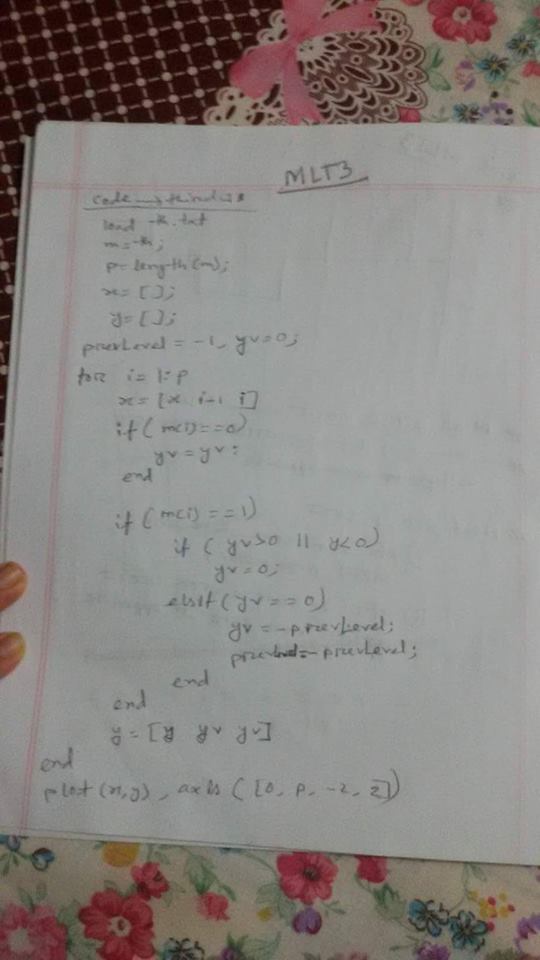 MLT3
load th.txt
m=th;
p=length(m);
x=[];
y=[];
prevLevel = -1, yv=0;
for i=1:p
x=[x i-1 i]
if(m(i)==0)
yv=yv;
end
if(m(i)==1)
if(yv>0 || y<0)
yv=0;
elseif(yv==0)
yv=-prevLevel;
prevLevel=-prevLevel;
end
end
y=[y yv yv]
end
plot(x,y), axis([0, p, -2, 2])